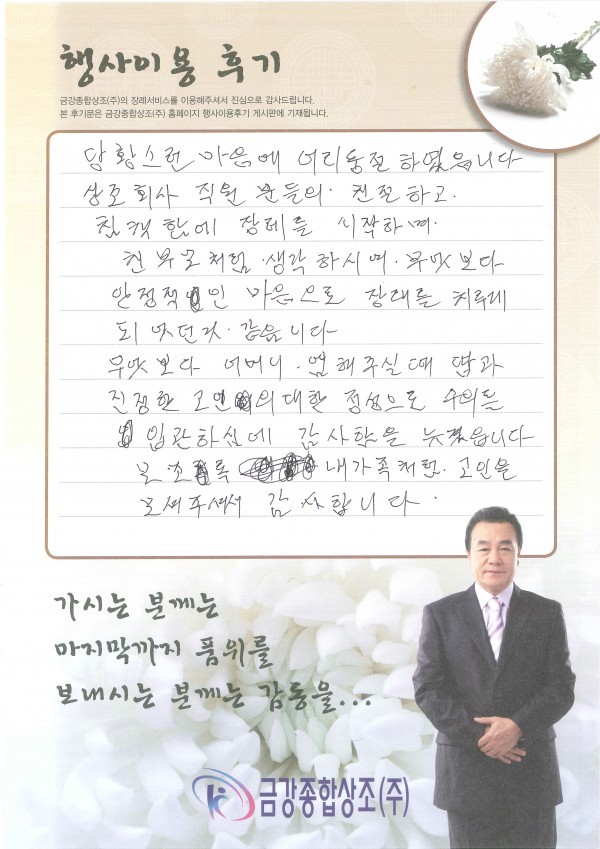 행사이용 후기
금강종합상조(주)의 장례서비스를 이용해주셔서 진심으로 감사드립니다.
본 후기문은 금강종합상조(주) 홈페이지 행사이용후기 게시판에 기재됩니다.
당황스런 마음에 어리둥절 하였습니다
상조회사 직원 분들의· 친절하고·
침착함에 장례를 시작하며·
친부모처럼·생각하시며·무엇보다
안정적인 마음으로 장래를 치루게
되엇던것·같읍니다
무엇보다 어머니·염해주실때 땀과
진정한 고인의대한 정성으로 수의를
입관하심에 감사함을 늣겼읍니다
내가족처럼·고인을
모셔주셔서 감사합니다·
가시는 분께는
마지막까지 품위를
보내시는 분께는 감동을...
금강종합상조(주)